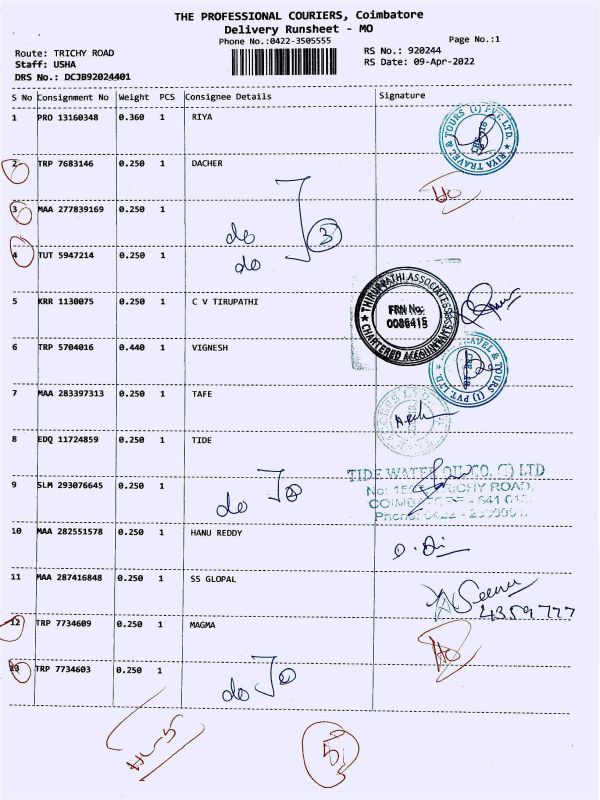 THE PROFESSIONAL COURIERS, Coimbatore
Delivery Runsheet - MO
Phone No.:0422-3505555
Page No.:1
Route: TRICHY ROAD
RS No.: 920244
Staff: USHA
RS Date: 09-Apr-2022
DRS No.: DCJB92024401
S No Consignment No Weight PCS Consignee Details Signature
1 PRO 13160348 0.360 1 RIYA
RIYA TRAVEL & TOURS (I) PVT. LTD.
2 TRP 7683146 0.250 1 DACHER
3 MAA 277839169 0.250 1
do
3
4 TUT 5947214 0.250 1
do
5 KRR 1130075 0.250 1 C V TIRUPATHI
THIRUPPATHI ASSOCIATES
FRN No:
CHARTERED ACCOUNTANTS
6 TRP 5704016 0.440 1 VIGNESH
TRAVEL & TOURS (I) PVT. LTD.
7 MAA 283397313 0.250 1 TAFE
8 EDQ 11724859 0.250 1 TIDE
TIDE WATER OIL CO. (I) LTD
9 SLM 293076645 0.250 1
do
TRICHY ROAD,
10 MAA 282551578 0.250 1 HANU REDDY
11 MAA 287416848 0.250 1 SS GLOPAL
12 TRP 7734609 0.250 1 MAGMA
13 TRP 7734603 0.250 1
do
5